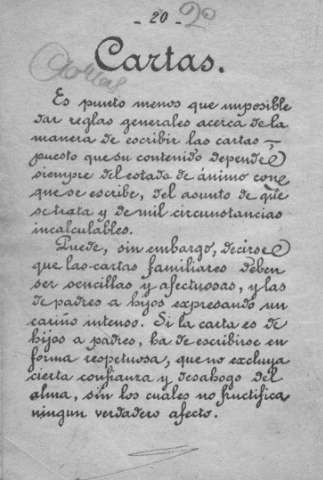 - 20 - 20
Cartas.
Cartas
Es punto menos que imposible
dar reglas generales acerca de la
manera de escribir las cartas
puesto que su contenido depende
siempre del estado de ánimo con
que se escribe, del asunto de que
se trata y de mil circunstancias
incalculables.
Puede, sin embargo, decirse
que las cartas familiares deben
ser sencillas y afectuosas, y las
de padres a hijos expresando un
cariño intenso. Si la carta es de
hijos a padres, ha de escribirse en
forma respetuosa, que no excluya
cierta confianza y desahogo del
alma, sin los cuales no fructifica
ningun verdadero afecto.